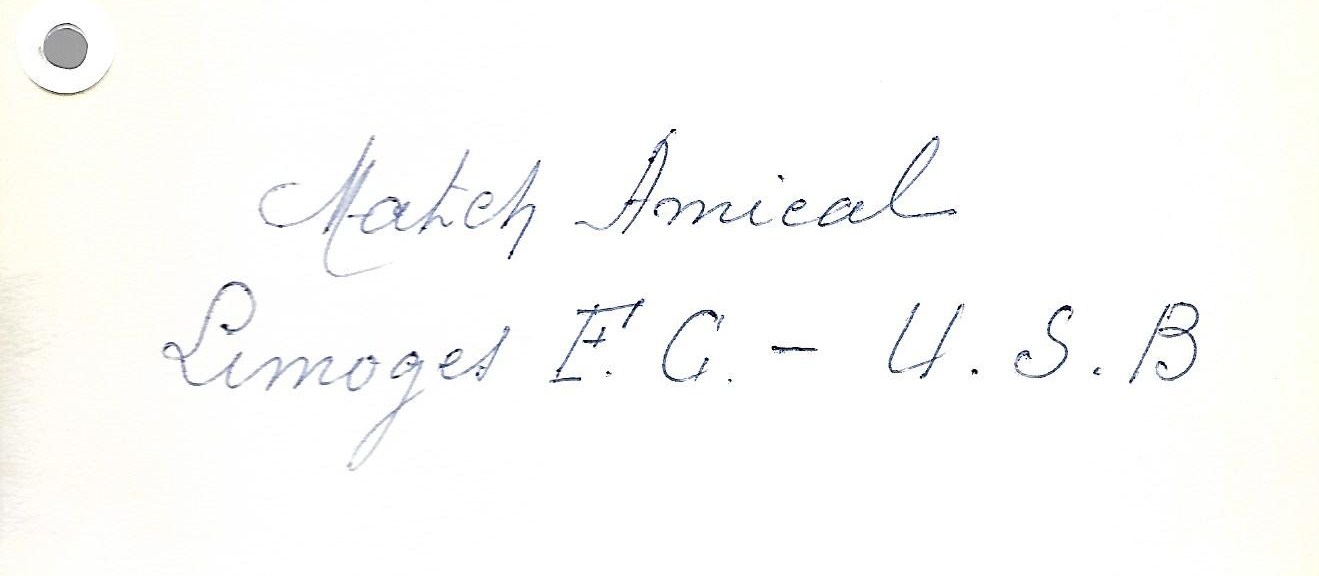 Match Amical
Limoges F.C. - U.S.B